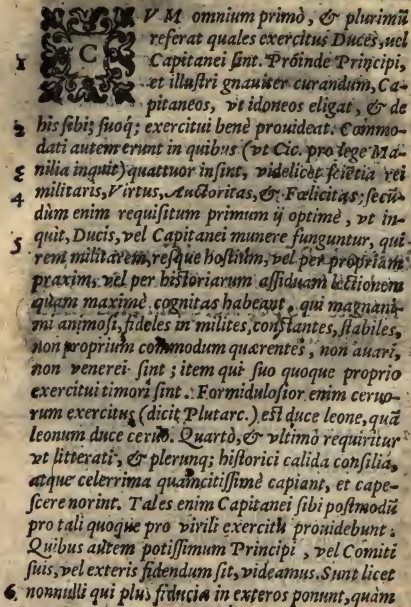 CVM omnium primò, & plurimũ
referat quales exercitus Duces, uel
1 Capitanei sint. Proinde Principi,
et illustri gnauiter curandum, Ca-
pitaneos, vt idoneos eligat, & de
2 his sibi; suoq; exercitui benè prouideat. Commo-
dati autem erunt in quibus (vt Cic. pro lege Ma-
3 nilia inquit) quattuor insint, videlicet scietia rei
4 militaris, Virtus, Auctoritas, & Fœlicitas; secũ-
dùm enim requisitum primum ij optimè, vt in-
5 quit, Ducis, vel Capitanei munere funguntur, qui
rem militarem, resque hostium, vel per propriam
praxim: vel per historiarum assiduam lectionem
quam maximè cognitas habeant, qui magnani-
mi animosi, fideles in milites, constantes, stabiles,
non proprium commodum quærentes, non auari,
non venerei sint; item qui suo quoque proprio
exercitui timori sint. Formidulosior enim ceruo-
rum exercitus (dicit Plutarc.) est duce leone, quã
leonum duce ceruo. Quartò, & vltimò requiritur
vt litterati, & plerunq; historici calida consilia,
atque celerrima quamcitissimè capiant, et cape-
scere norint. Tales enim Capitanei sibi postmodũ
pro tali quoque pro virili exercitu prouidebunt.
Quibus autem potissimum Principi, vel Comiti
suis, vel exteris fidendum sit, videamus. Sunt licet
6. nonnulli qui plus fiduciæ in exteros ponunt, quàm